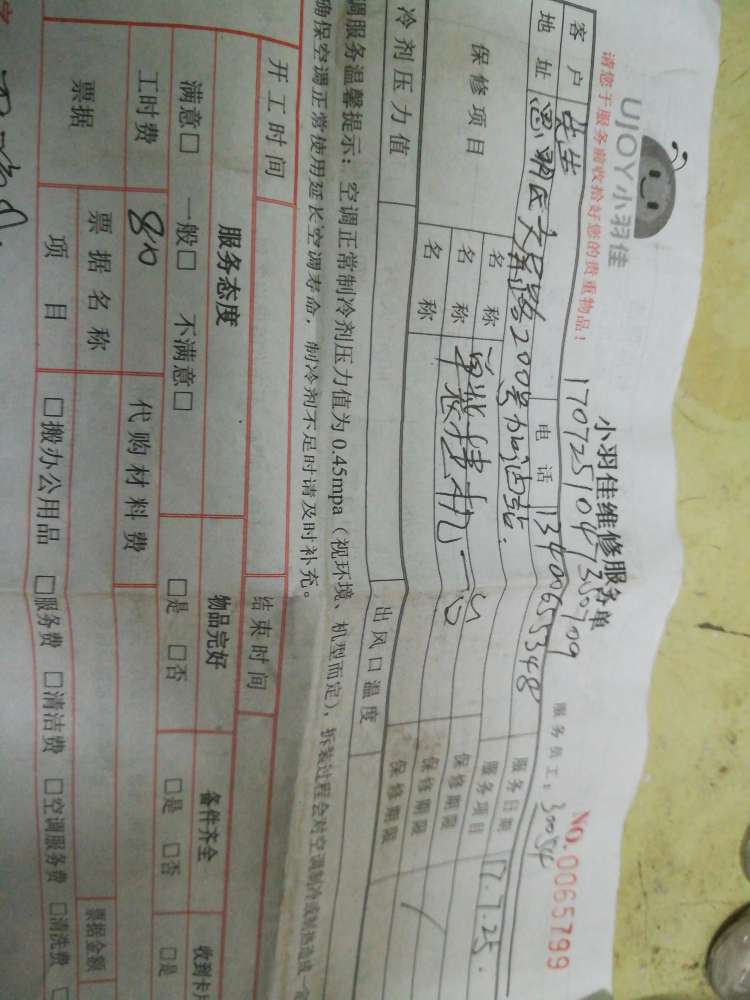 UJOY小羽佳
小羽佳维修服务单
NO.0065799
请您于服务前收拾好您的贵重物品!
服务员工:
客户
电话
服务日期 17.7.25.
地址
200号加油站.
服务项目
保修项目
名称
保修期限
名称
保修期限
名称
保修期限
冷剂压力值
出风口温度
调服务温馨提示:空调正常制冷剂压力值为0.45mpa(视环境、机型而定),拆装过程会对空调制冷或制热造成一
确保空调正常使用延长空调寿命,制冷剂不足时请及时补充。
开工时间
结束时间
服务态度
物品完好
备件齐全
收到卡
满意□ 一般□ 不满意□
□是 □否
□是 □否
□是
工时费
80
代购材料费
票据
票据名称
票据金额
项目
□搬办公用品 □服务费 □清洁费 □空调服务费 □清洗费 □